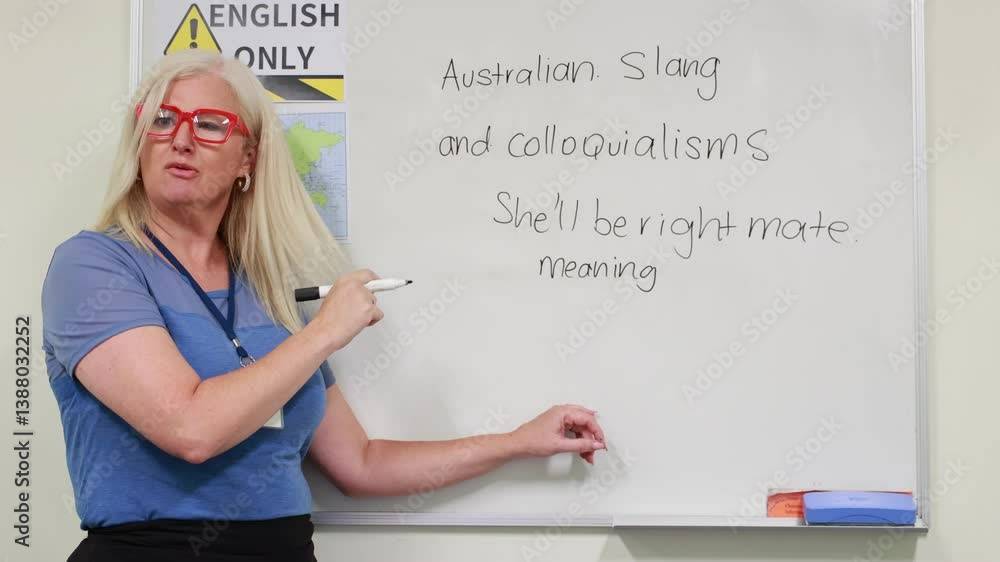 ENGLISH
ONLY
Australian. Slang
and colloquialisms
She'll be right mate.
meaning
Adobe Stock | #1388032252